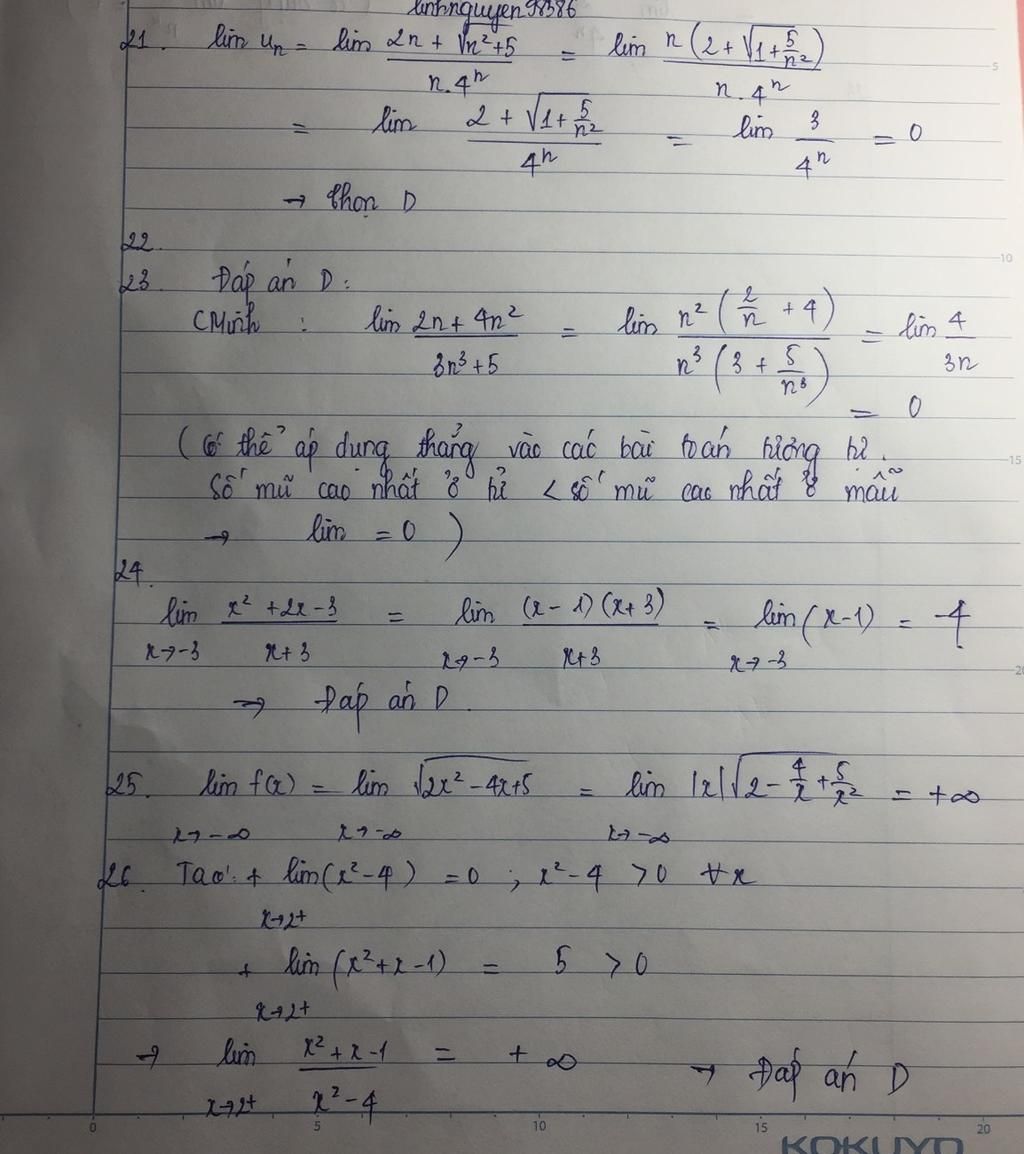 linhnguyen98386
21. lim uₙ = lim (2n + √(n²+5))/(n.4ⁿ) = lim n(2 + √(1 + 5/n²))/(n.4ⁿ)
= lim (2 + √(1 + 5/n²))/4ⁿ = lim 3/4ⁿ = 0
→ Chọn D
22.
23. Đáp án D:
CMinh : lim (2n + 4n²)/(3n³ + 5) = lim n²(2/n + 4)/(n³(3 + 5/n³)) = lim 4/3n
= 0
( Có thể áp dụng thẳng vào các bài toán tương tự.
Số mũ cao nhất ở tử < số mũ cao nhất ở mẫu
→ lim = 0 )
24.
lim x→-3 (x² + 2x - 3)/(x + 3) = lim x→-3 (x - 1)(x + 3)/(x + 3) = lim x→-3 (x - 1) = -4
→ Đáp án D.
25. lim x→-∞ f(x) = lim x→-∞ √(2x² - 4x + 5) = lim x→-∞ |x|√(2 - 4/x + 5/x²) = +∞
26. Ta có: + lim x→2⁺ (x² - 4) = 0 ; x² - 4 > 0 ∀x
+ lim x→2⁺ (x² + x - 1) = 5 > 0
→ lim x→2⁺ (x² + x - 1)/(x² - 4) = +∞ → Đáp án D
5
10
15
20
0 5 10 15 20
KOKUYO